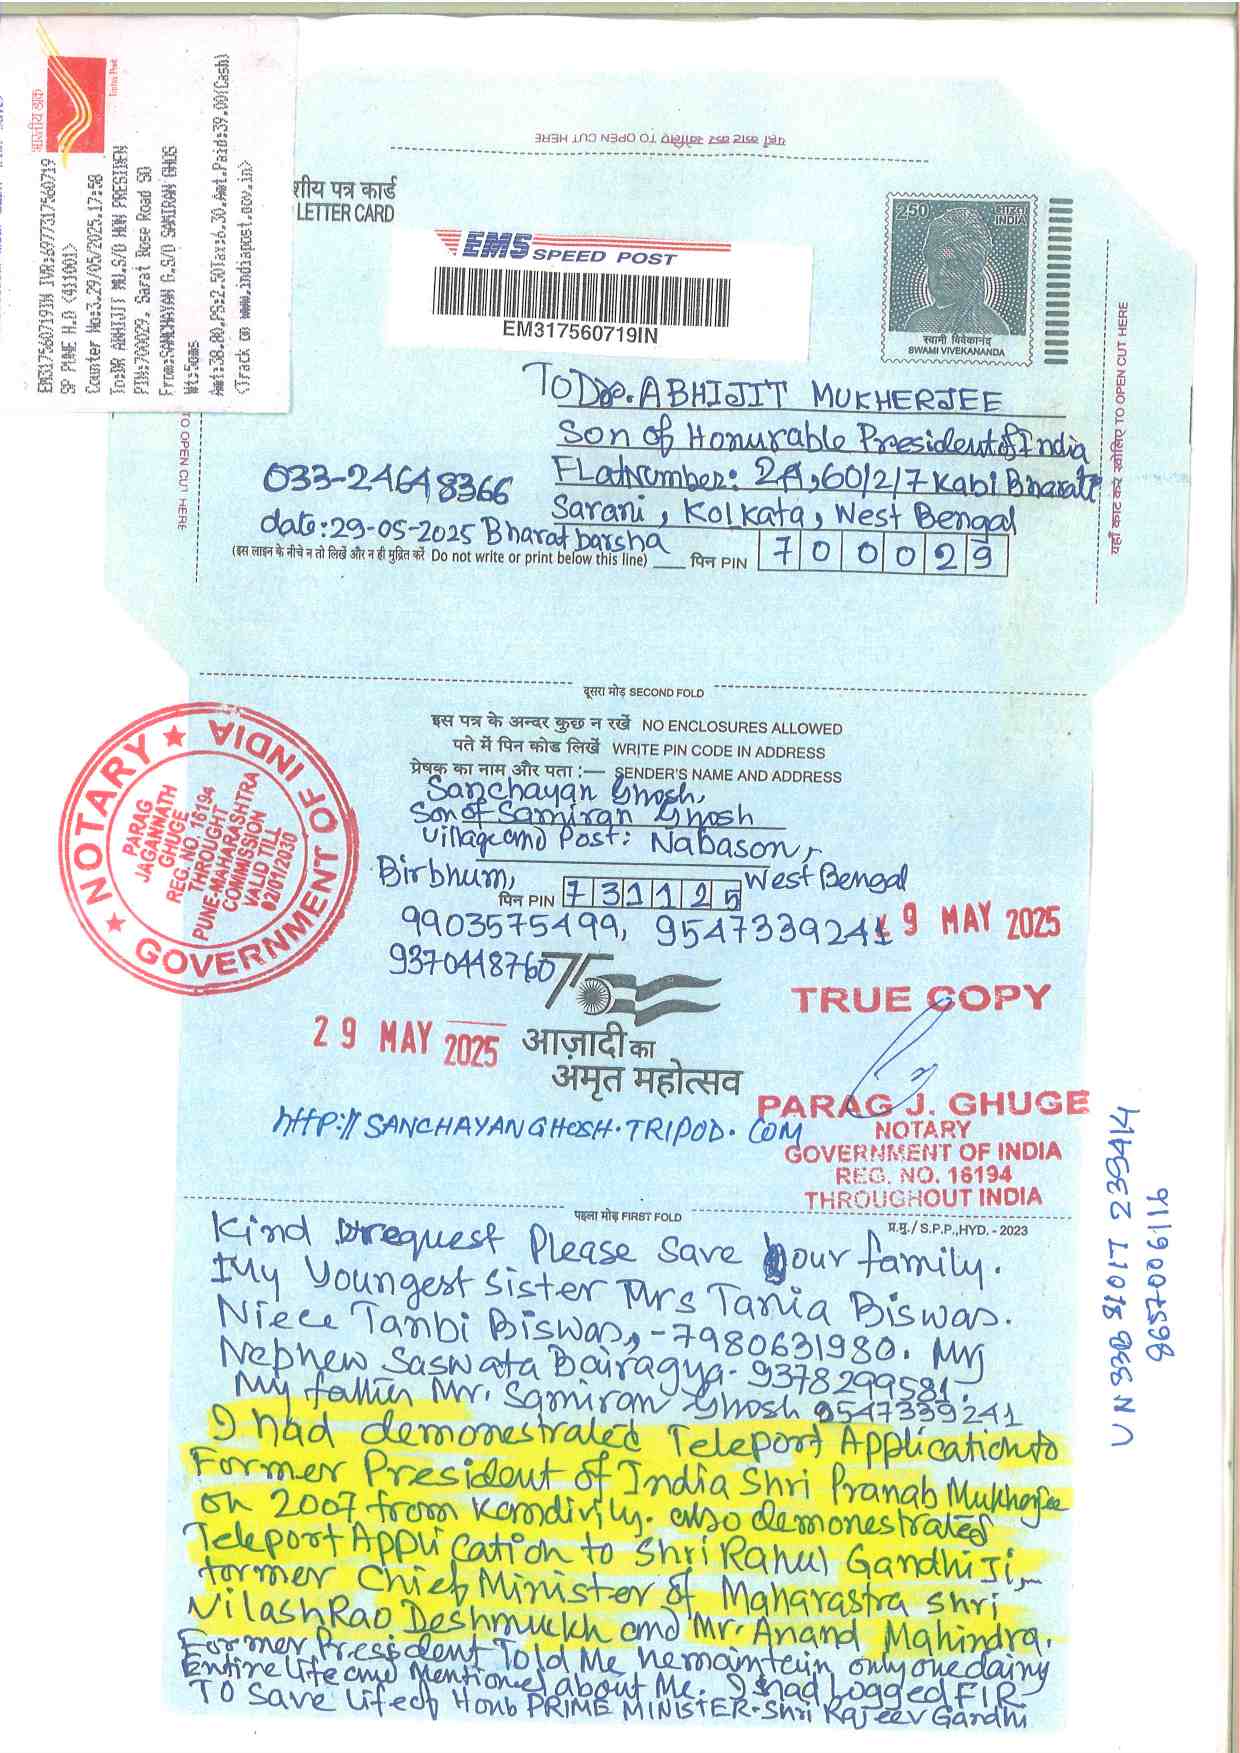 भारतीय डाक
India Post
EM317560719IN IVR:6977317560719
SP PUNE H.O <411001>
Counter No:3,29/05/2025,17:58
To:DR ABHIJIT MU,S/O HON PRESIDEN
PIN:700029, Sarat Bose Road SO
From:SANCHAYAN G,S/O SAMIRAN GHOS
Wt:5gms
Amt:38.80,PS:2.50Tax:6.30,Amt.Paid:39.00(Cash)
<Track on www.indiapost.gov.in>
यहाँ काट कर खोलिए TO OPEN CUT HERE
शीय पत्र कार्ड
LETTER CARD
EMS SPEED POST
EM317560719IN
250 भारत INDIA
स्वामी विवेकानंद
SWAMI VIVEKANANDA
TO OPEN CUT HERE
यहाँ काट कर खोलिए TO OPEN CUT HERE
TO Dr. ABHIJIT MUKHERJEE
Son of Honurable President of India
FLatNumber: 2A, 60/2/7 Kabi Bharati
033-24648366
Sarani, Kolkata, West Bengal
date:29-05-2025 Bharatbarsha
(इस लाइन के नीचे न तो लिखें और न ही मुद्रित करें Do not write or print below this line) पिन PIN 700029
दूसरा मोड़ SECOND FOLD
इस पत्र के अन्दर कुछ न रखें NO ENCLOSURES ALLOWED
पते में पिन कोड लिखें WRITE PIN CODE IN ADDRESS
प्रेषक का नाम और पता :— SENDER'S NAME AND ADDRESS
Sanchayan Ghosh,
Son of Samiran Ghosh
Village and Post: Nabason,
Birbhum, West Bengal
पिन PIN 731125
9903575499, 9547339241
9370448760
NOTARY
GOVERNMENT OF INDIA
PARAG
JAGANNATH
GHUGE
REG. NO. 16194
THROUGHT
PUNE-MAHARASHTRA
COMMISSION
VALID TILL
02/01/2030
9 MAY 2025
TRUE COPY
29 MAY 2025
75
आज़ादी का
अमृत महोत्सव
PARAG J. GHUGE
NOTARY
GOVERNMENT OF INDIA
REG. NO. 16194
THROUGHOUT INDIA
http://SANCHAYANGHOSH.TRIPOD.COM
पहला मोड़ FIRST FOLD
प्र.मु./ S.P.P.,HYD. - 2023
Kind request Please Save our family.
My Youngest Sister Mrs Tania Biswas.
Niece Tanbi Biswas, -7980631980. My
Nephew Saswata Bairagya- 9378299581.
My father Mr. Samiran Ghosh 9547339241
I had demonestrated Teleport Application to
Former President of India Shri Pranab Mukherjee
on 2007 from Kandivily. also demonestrated
Teleport Application to Shri Rahul Gandhi Ji,
former Chief Minister of Maharastra Shri
VilashRao Deshmuckh and Mr. Anand Mahindra.
Former President Told Me he maintain only one dairy
Entire life and Mentioned about Me. I had Logged FIR
TO Save Life of Honb PRIME MINISTER-Shri Rajeev Gandhi
UN 338 81017 239414
8657006116